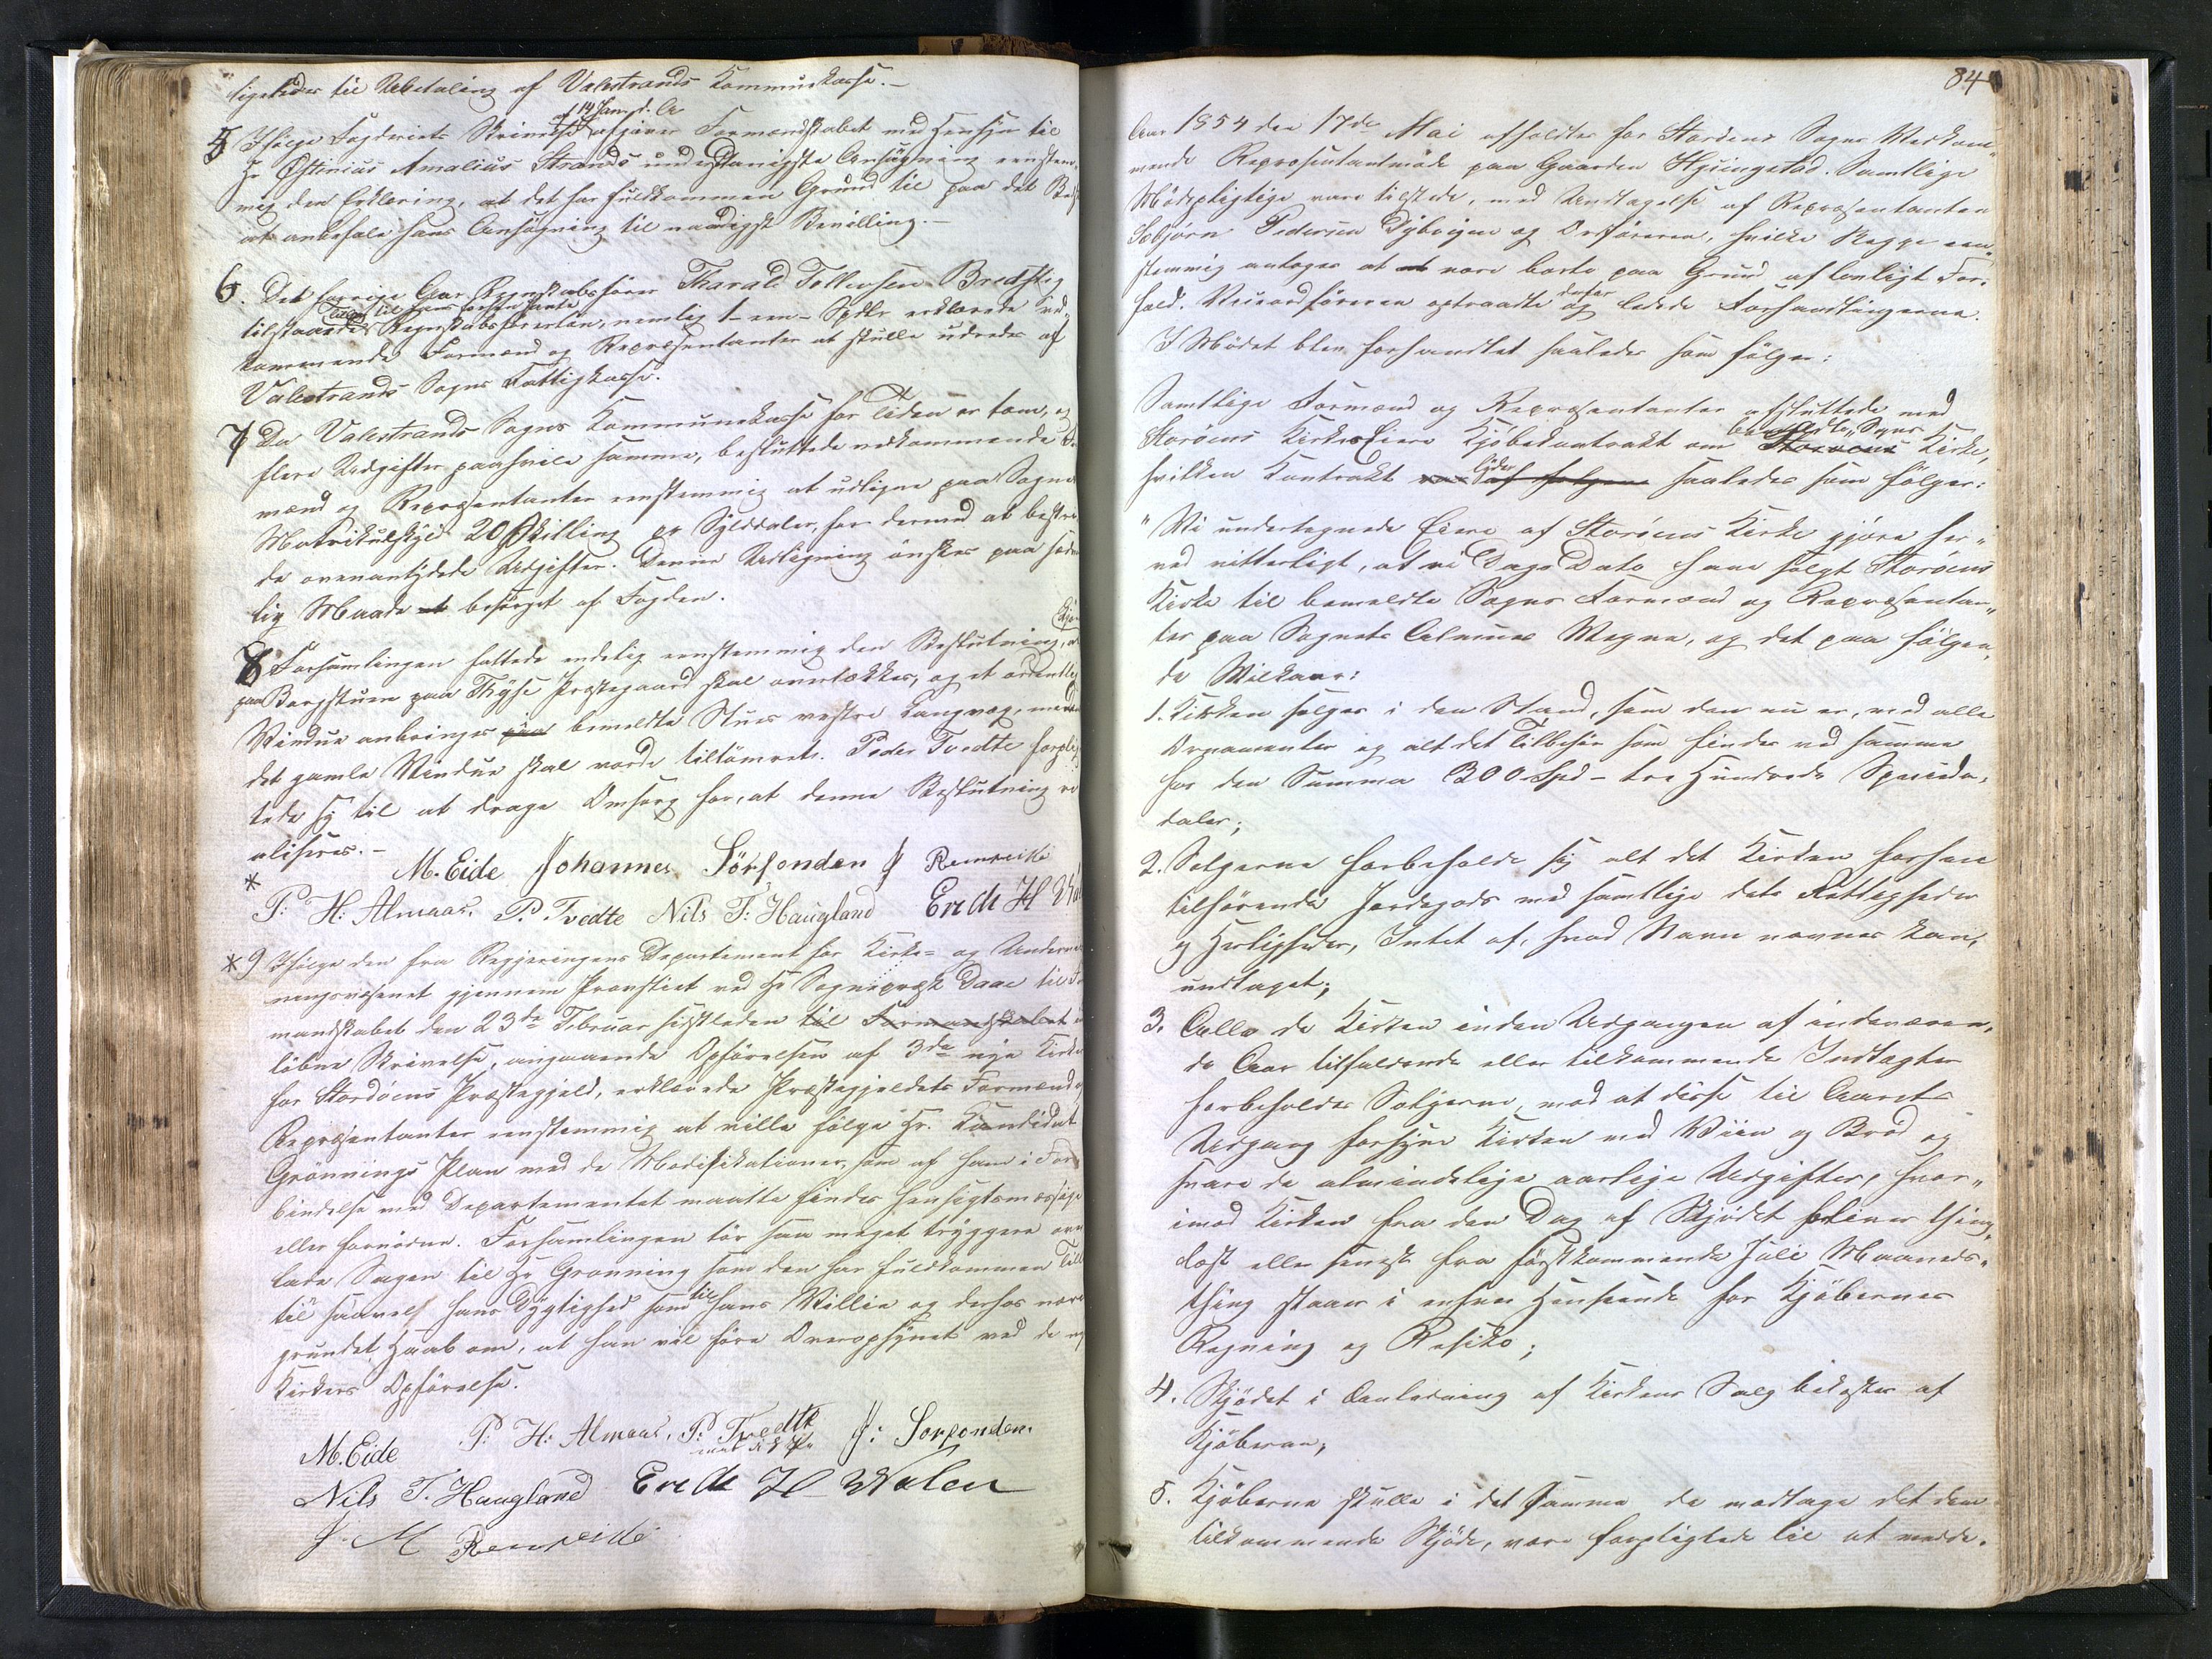 ligeledes til Udbetaling af Valestrands Kommunekasse.–
5 Ifølge Fogderiets Skrivelse af 14 Jan. d. A. afgiver Formandskabet med Hensyn til
Hr Østinius Amalius Strands underdanigste Ansøgning eenstem-
mig den Erklæring, at det har fuldkommen Grund til paa det Bedste
at anbefale hans Ansøgning til naadigst Bevilling.–
6. Det forrige Aars Regnskabsfører Tharald Tollevsen Bredflig
tilstaaede Regnskabsførerløn, nemlig 1–een– Spdlr erklærede ved-
kommende Formænd og Repræsentanter at skulle udredes af
Valestrands Sogns Fattigkasse.
7 Da Valestrands Sogns Kommunekasse for Tiden er tom, og
flere Udgifter paahvile samme, besluttede vedkommende For-
mænd og Repræsentanter eenstemmig at udligne paa Sognets
Matrikulskyld 20 Skilling pr Skylddaler, for dermed at bestri-
de ovenantydede Udgifter. Denne Udligning ønskes paa sædvan-
lig Maade besørget af Fogden.
8 Forsamlingen fattede endelig eenstemmig den Beslutning, at
paa Borgstuen paa Thyse Præstegaard skal overtækkes, og et ordentlig
Vindue anbringes paa bemeldte Stues vestre Langvæg, medens
det gamle Vindue skal vorde tiltømret. Peder Tvedte forplig-
tede sig til at drage Omsorg for, at denne Beslutning re-
aliseres.–
M. Eide Johannes Sørfonden J Remreide
*
P: H: Almaas. P. Tvedte Nils T: Haugland Erick H Valen
* 9 Ifølge den fra Regjeringens Departement for Kirke- og Underviis-
ningsvæsenet gjennem Provstiet ved Hr Sognepræst Daae til For-
mandskabet den 23de Februar sidstleden til Formandskabet ind-
løbne Skrivelse, angaaende Opførelsen af 3de nye Kirker
for Stordøens Præstegjeld, erklærede Præstegjeldets Formænd og
Repræsentanter eenstemmig at ville følge Hr. Kandidat
Grønnings Plan med de Modifikationer, som af ham i For-
bindelse med Departementet maatte findes hensigtsmæssige
eller fornødne. Forsamlingen tør saa meget tryggere over-
lade Sagen til Hr Grønning som den har fuldkommen Tillid
til saavel hans Dygtighed som til hans Villie og derhos nærer
grundet Haab om, at han vil føre Overopsynet ved de nye
Kirkers Opførelse.
M. Eide P: H: Almaas. P: Tvedte J: Sorfonden.
Nils T. Haugland Erick H Valen
J M Remreide
84
Aar 1854 den 17de Mai afholdtes for Stordens Sogns Vedkom-
mende Repræsentantmøde paa Gaarden Hysingstad. Samtlige
Mødepligtige vare tilstede, med Undtagelse af Repræsentanten
Sebjørn Pedersen Dybvigen og Ordføreren, hvilke Begge een-
stemmig antages at være borte paa Grund af lovligt For-
fald. Viceordføreren optraadte derfor og ledede Forhandlingerne.
I Mødet blev forhandlet saaledes som følger:
Samtlige Formænd og Repræsentanter afsluttede med
Storøens Kirkes Eiere Kjøbekontrakt om bemeldte Sogns Storøens Kirke,
hvilken Kontrakt lyder saaledes som følger:
"Vi undertegnede Eiere af Storøens Kirke gjøre her-
ved vitterligt, at vi Dags Dato have solgt Storøens
Kirke til bemeldte Sogns Formænd og Repræsentan-
ter paa Sognets Almues Vegne, og det paa følgen-
de Vilkaar:
1. Kirken sælges i den Stand, som den nu er, med alle
Ornamenter og alt det Tilbehør som findes ved samme
for den Summa 300 Spd – tre Hundrede Specieda-
ler;
2. Sælgerne forbeholde sig alt det Kirken forhen
tilhørende Jordegods med samtlige dets Rettigheder
og Herligheder, Intet af, hvad Navn nævnes kan,
undtaget;
3. Alle de Kirken inden Udgangen af indeværen-
de Aar tilfaldende eller tilkommende Indtægter
forbeholdes Sælgerne, mod at disse til Aarets
Udgang forsyne Kirken med Viin og Brød og
svare de almindelige aarlige Udgifter, hvor-
imod Kirken fra den Dag af Skjødet bliver thing-
læst eller senest fra førstkommende Juli Maaneds-
thing staar i enhver Henseende for Kjøbernes
Regning og Risiko;
4. Skjødet i Anledning af Kirkens Salg bekostes af
Kjøberne;
5. Kjøberne skulle i det samme de modtage det dem
tilkommende Skjøde, være forpligtede til at medde-